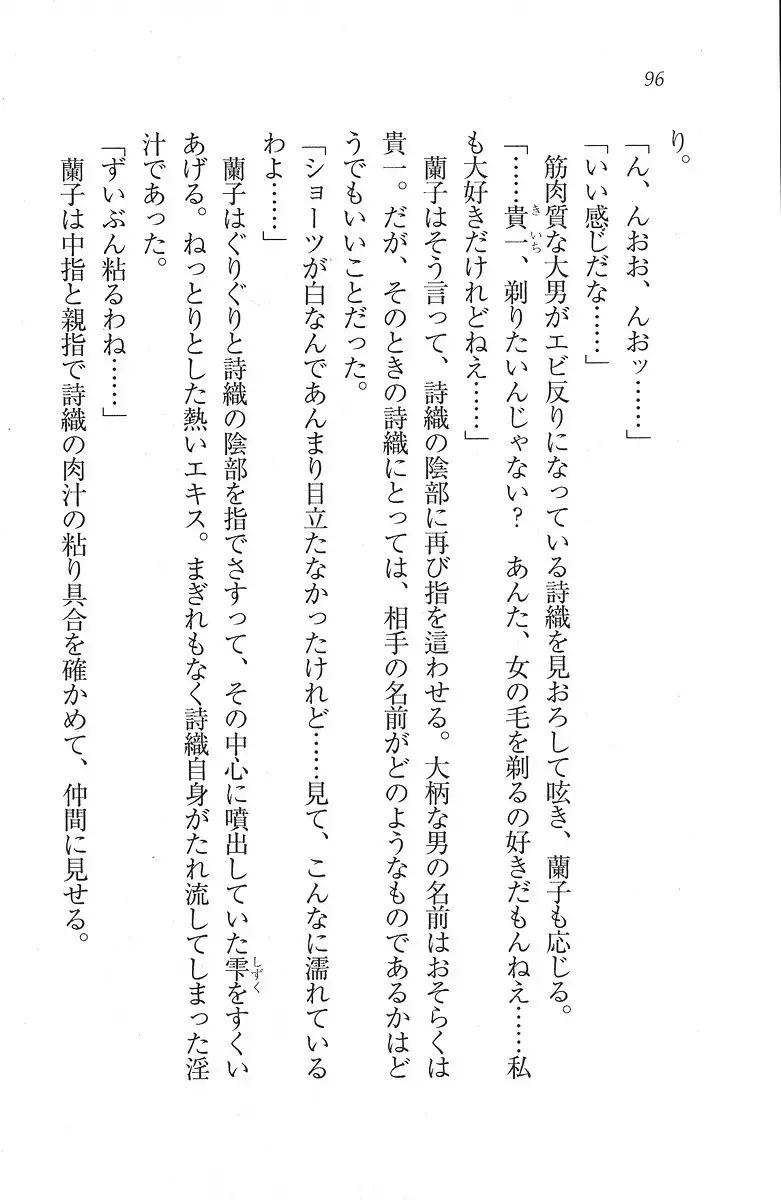 96
り。
「ん、んおお、んおッ……」
「いい感じだな……」
筋肉質な大男がエビ反りになっている詩織を見おろして呟き、蘭子も応じる。
「……貴一、剃りたいんじゃない？　あんた、女の毛を剃るの好きだもんねえ……私
きいち
も大好きだけれどねえ……」
蘭子はそう言って、詩織の陰部に再び指を這わせる。大柄な男の名前はおそらくは
貴一。だが、そのときの詩織にとっては、相手の名前がどのようなものであるかはど
うでもいいことだった。
「ショーツが白なんであんまり目立たなかったけれど……見て、こんなに濡れている
わよ……」
蘭子はぐりぐりと詩織の陰部を指でさすって、その中心に噴出していた雫をすくい
しずく
あげる。ねっとりとした熱いエキス。まぎれもなく詩織自身がたれ流してしまった淫
汁であった。
「ずいぶん粘るわね……」
蘭子は中指と親指で詩織の肉汁の粘り具合を確かめて、仲間に見せる。